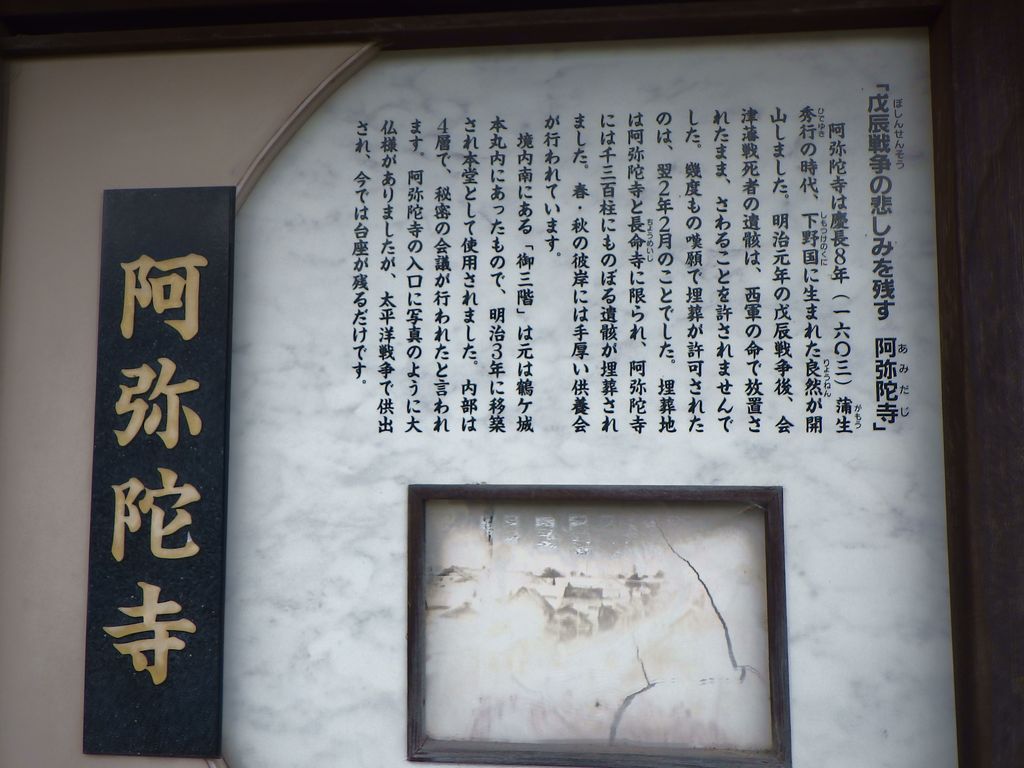 「戊辰戦争の悲しみを残す 阿弥陀寺」
ぼしんせんそう
あみだじ
阿弥陀寺は慶長8年(一六〇三)蒲生
がもう
秀行の時代、下野国に生まれた良然が開
ひでゆき
しもつけのくに
りょうねん
山しました。明治元年の戊辰戦争後、会
津藩戦死者の遺骸は、西軍の命で放置さ
れたまま、さわることを許されませんで
した。幾度もの嘆願で埋葬が許可された
のは、翌2年2月のことでした。埋葬地
は阿弥陀寺と長命寺に限られ、阿弥陀寺
ちょうめいじ
には千三百柱にものぼる遺骸が埋葬され
ました。春・秋の彼岸には手厚い供養会
が行われています。
境内南にある「御三階」は元は鶴ケ城
本丸内にあったもので、明治3年に移築
され本堂として使用されました。内部は
4層で、秘密の会議が行われたと言われ
ます。阿弥陀寺の入口に写真のように大
仏様がありましたが、太平洋戦争で供出
され、今では台座が残るだけです。
阿弥陀寺